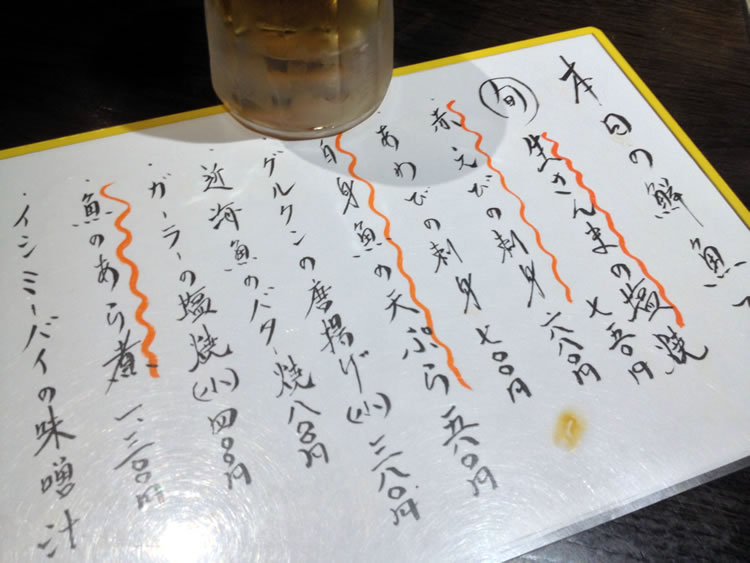 本日の鮮魚
旬 生さんまの塩焼 七五〇円
・赤えびの刺身 六八〇円
・あわびの刺身 七〇〇円
白身魚の天ぷら 五八〇円
・グルクンの唐揚げ(小) 三八〇円
・近海魚のバター焼 八〇〇円
・ガーラーの塩焼(小) 四〇〇円
・魚のあら煮 一、三〇〇円
・イシミーバイの味噌汁